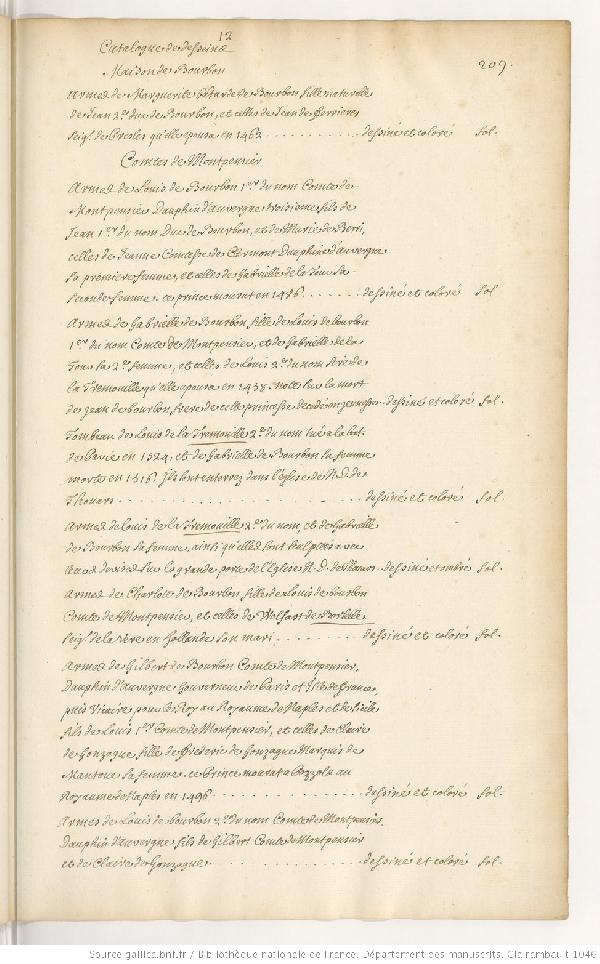 12
Catalogue de desseins
209.
Maison de Bourbon
Armes de Marguerite batarde de Bourbon fille naturelle
de Jean 2.d duc de Bourbon, et celles de Jean de ferrieres
seig.r de qu'elle epousa en 1463 . . . . . . . . . . . dessiné et coloré fol.
Comtes de Montpensier
Armes de Louis de Bourbon 1.er du nom Comte de
Montpensier Dauphin d'auvergne troisieme fils de
Jean 1.er du nom Duc de Bourbon, et de Marie de Berri,
celles de Jeanne Comtesse de Clermont Dauphine d'auvergne
sa premiere femme, et celles de Gabrielle de la Tour sa
seconde femme. ce prince mourut en 1486 . . . . . . . dessiné et coloré fol
Armes de Gabrielle de Bourbon fille de Louis de bourbon
1.er du nom Comte de Montpensier, et de Gabrielle de la
Tour sa 2.e femme, et celles de Louis 2.d du nom sire de
la Tremouille qu'elle epousa en 1458. sur la mort
de Jean de bourbon frere de cette princesse decedé en jeunesse . dessiné et coloré fol.
Tombeau de Louis de la Tremouille 2.d du nom tué a la bat.
de Pavie en 1524, et de Gabrielle de Bourbon sa femme
morte en 1516. Ils sont enterrez dans l'eglise de N.D. de
Thouars . . . . . . . . . . . . . . . . . . . . . . . dessiné et coloré fol.
Armes de Louis de la Tremouille 2.d du nom, et de Gabrielle
de Bourbon sa femme, ainsi qu'elles sont sculptées
sur la grande porte de l'Eglise N.D. de Thouars . dessiné et ombré fol.
Armes de Charlote de Bourbon fille de Louis de bourbon
Comte de Montpensier, et celles de Wolfart de Borselle
seig.r de la Vere en Hollande son mari . . . . . . . . . dessiné et coloré fol.
Armes de Gilbert de Bourbon Comte de Montpensier,
Dauphin d'Auvergne Gouverneur de Paris et Isle de france,
puis Viceroy pour le Roy au Royaume de Naples et de Sicile
fils de Louis 1.er Comte de Montpensier, et celles de Claire
de Gonzague fille de frederic de Gonzague Marquis de
Mantoue sa femme. ce Prince mourut a Pozzolo au
Royaume de Naples en 1496 . . . . . . . . . . . . . . dessiné et coloré fol.
Armes de Louis de bourbon 2.d du nom Comte de Montpensier,
Dauphin d'auvergne fils de Gilbert Comte de Montpensier
et de Claire de Gonzague . . . . . . . . . . . . . . . dessiné et coloré fol.
Source gallica.bnf.fr / Bibliothèque nationale de France. Département des manuscrits. Clairambault 1046